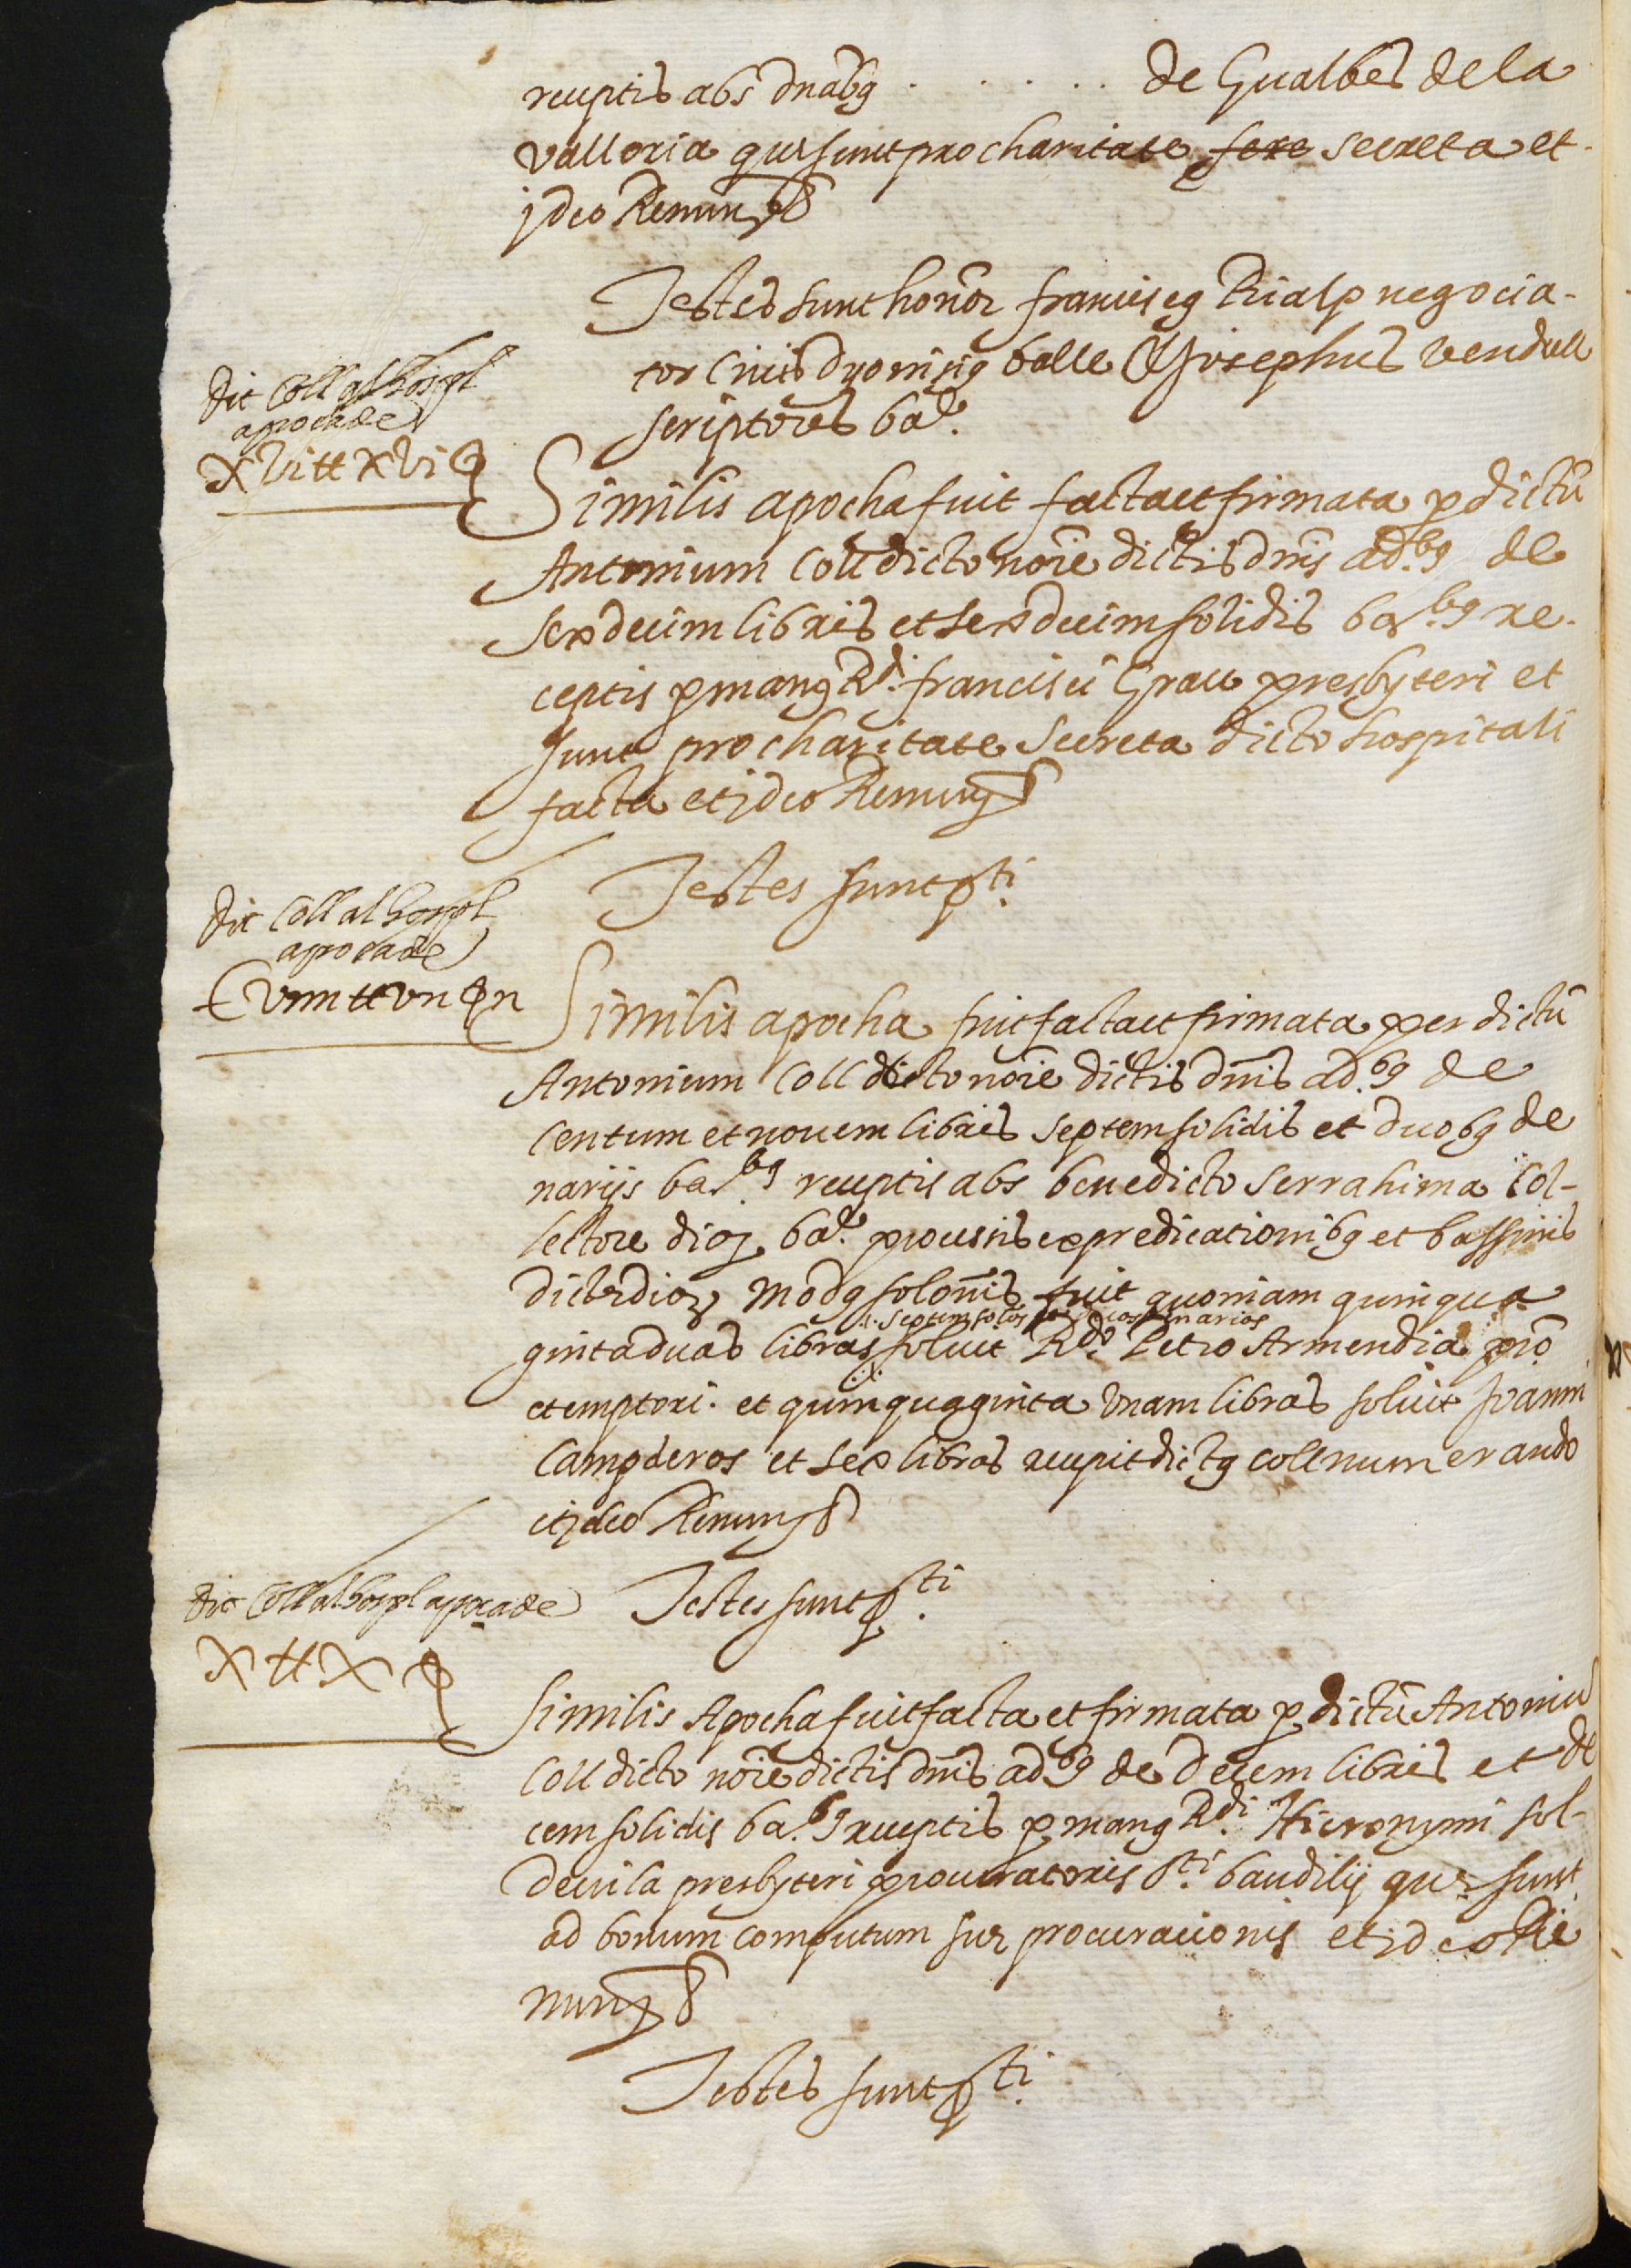 receptis abs dnabꝯ . . . . . de Gualbes de la
valloria que sunt pro charitate fere secreta et
ideo Renunꝭ &
Testes sunt honor franciscꝯ Rialp negocia-
tor civis dyonisiꝯ balle & Josephus vendrell
scriptores bar.
dit Coll al hospl
apoca de
xvi tt xvi ꝑ
Similis apocha fuit facta et firmata ꝑ dictū
Antonium Coll dicto noīe dictis dnīs adbꝯ de
sexdecim libris et sexdecim solidis bar.bꝯ re-
ceptis ꝑ manꝯ Rdi. francisci Grau presbyteri et
sunt pro charitate secreta dicto hospitali
facta et ideo Renunꝭ &
Testes sunt pti.
dit Coll al hospl
apoca de
Cviiii tt vii ꝑ ii
Similis apocha fuit facta et firmata per dictū
Antonium Coll dicto noīe dictis dnīs ad.bꝯ de
centum et novem libris septem solidis et duobꝯ de
narijs bar.bꝯ receptis abs benedicto serrahima col-
lectore dioꝫ. bar. processis ex predicationibꝯ et bassinis
dicte dioꝫ modꝯ solonīs fuit quoniam quinqua
.. septem solos et duos denarios
ginta duas libras soluit Rdo. Petro Armendia prō
et emptori. et quinquaginta vnam libras soluit Joanni
Campderos et sex libras recepit dictꝯ coll numerando
et ideo Renunꝭ &
Testes sunt pti.
dit Coll al hospl apoca de
X tt X ꝑ
Similis Apocha fuit facta et firmata ꝑ dictū Antoniū
Coll dicto noīe dictis dnīs adbꝯ de Decem libris et de
cem solidis ba.bꝯ receptis ꝑ manꝯ Rdi. Hieronymi sol-
devila presbyteri procuratoris Sti. baudilij que sunt
ad bonum computum sue procuracionis et ideo Re
nunꝭ &
Testes sunt pti.